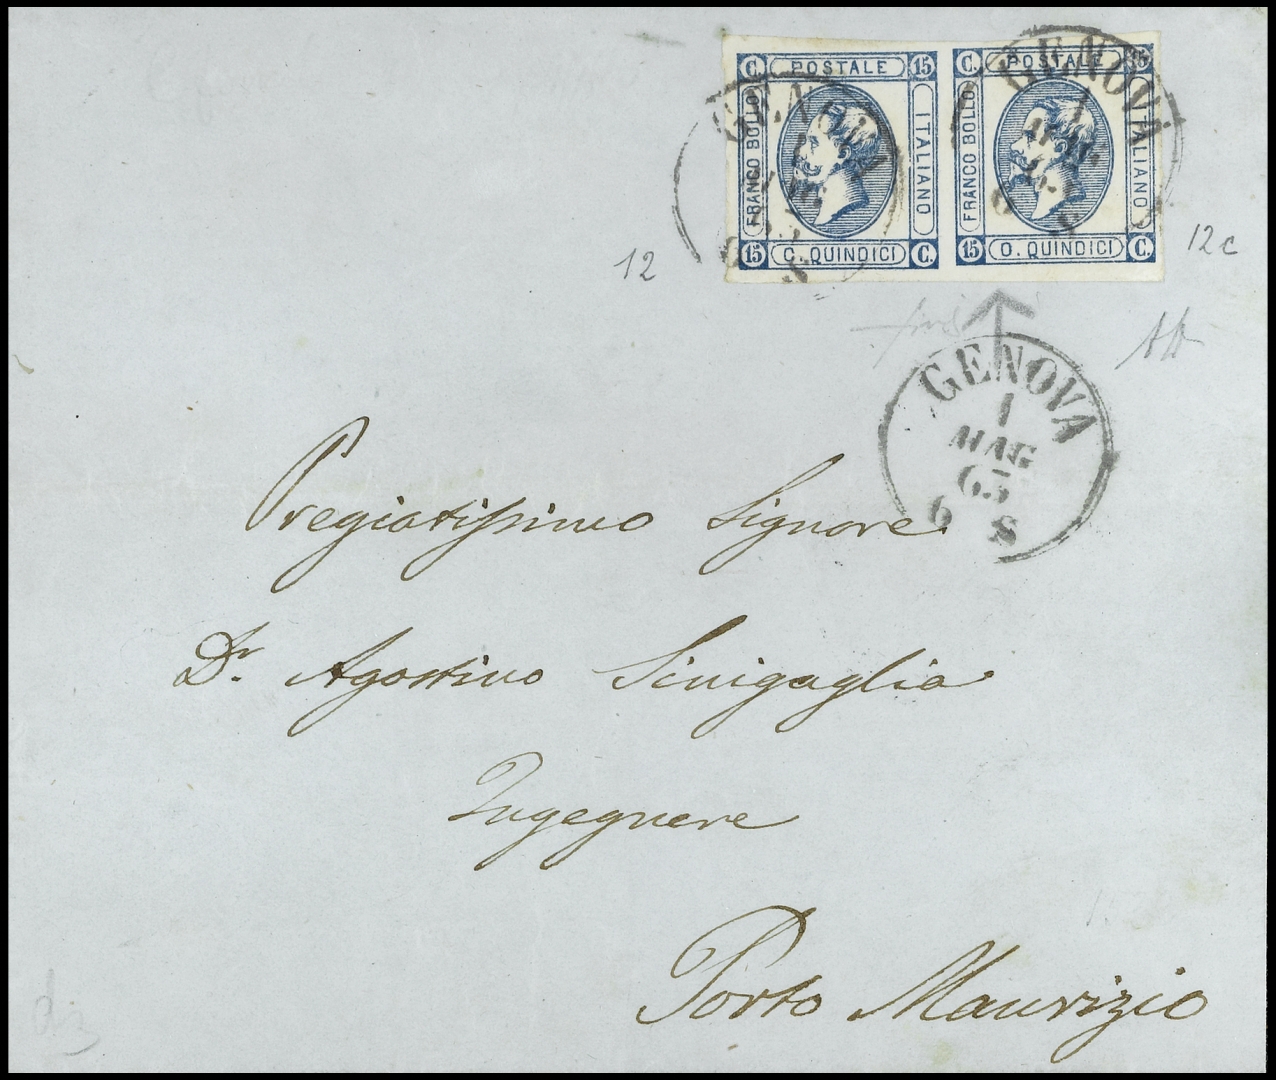 C. POSTALE 15
FRANCO BOLLO
ITALIANO
15 C. QUINDICI C.
C. POSTALE 15
FRANCO BOLLO
ITALIANO
15 O. QUINDICI C.
GENOVA
GENOVA
12
12c
GENOVA
1
MAG
63
6 S
Pregiatissimo Signore
Dr. Agostino Sinigaglia
Ingegnere
Porto Maurizio